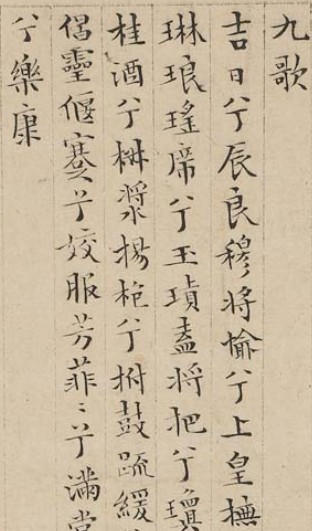 九歌
吉日兮辰良穆將愉兮上皇撫
琳琅瑤席兮玉瑱盍將把兮瓊
桂酒兮椒漿揚枹兮拊鼓疏緩
偃蹇兮姣服芳菲〻兮滿堂
兮樂康